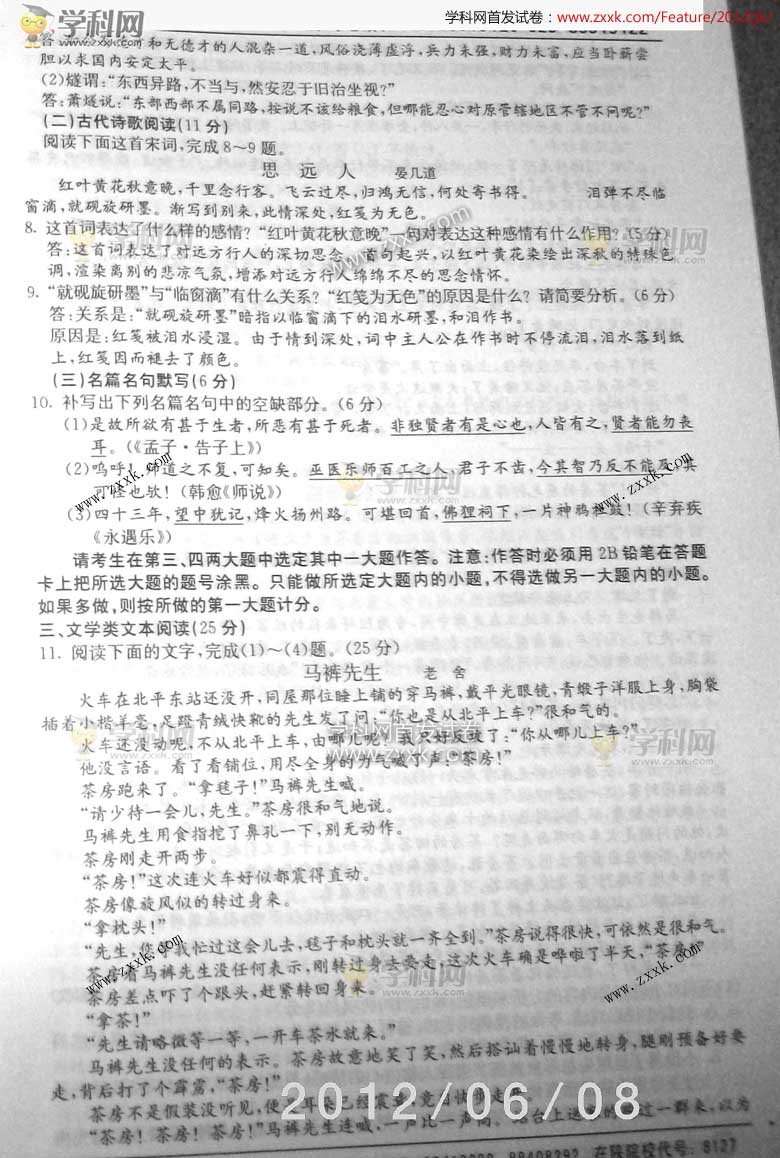 学科网首发试卷：www.zxxk.com/Feature/2012gk/
和无德才的人混杂一道,风俗浇薄虚浮,兵力未强,财力未富,应当卧薪尝
胆以求国内安定太平。
(2)燧谓:“东西异路,不当与,然安忍于旧治坐视?”
答:萧燧说:“东部西部不属同路,按说不该给粮食,但哪能忍心对原管辖地区不管不问呢?”
(二)古代诗歌阅读(11 分)
阅读下面这首宋词,完成8～9题。
思 远 人 晏几道
红叶黄花秋意晚,千里念行客。飞云过尽,归鸿无信,何处寄书得。 泪弹不尽临
窗滴,就砚旋研墨。渐写到别来,此情深处,红笺为无色。
8. 这首词表达了什么样的感情?“红叶黄花秋意晚”一句对表达这种感情有什么作用?(5 分)
答:这首词表达了对远方行人的深切思念。首句起兴,以红叶黄花染绘出深秋的特殊色
调,渲染离别的悲凉气氛,增添对远方行人绵绵不尽的思念情怀。
9. “就砚旋研墨”与“临窗滴”有什么关系?“红笺为无色”的原因是什么? 请简要分析。(6 分)
答:关系是:“就砚旋研墨”暗指以临窗滴下的泪水研墨,和泪作书。
原因是:红笺被泪水浸湿。由于情到深处,词中主人公在作书时不停流泪,泪水落到纸
上,红笺因而褪去了颜色。
(三)名篇名句默写(6 分)
10. 补写出下列名篇名句中的空缺部分。(6 分)
(1)是故所欲有甚于生者,所恶有甚于死者。非独贤者有是心也,人皆有之,贤者能勿丧
耳。(《孟子·告子上》)
(2)呜呼!师道之不复,可知矣。巫医乐师百工之人,君子不齿,今其智乃反不能及,其
可怪也欤!(韩愈《师说》)
(3)四十三年,望中犹记,烽火扬州路。可堪回首,佛狸祠下,一片神鸦社鼓!(辛弃疾
《永遇乐》)
请考生在第三、四两大题中选定其中一大题作答。注意:作答时必须用 2B 铅笔在答题
卡上把所选大题的题号涂黑。只能做所选定大题内的小题,不得选做另一大题内的小题。
如果多做,则按所做的第一大题计分。
三、文学类文本阅读(25 分)
11. 阅读下面的文字,完成(1)～(4)题。(25 分)
马裤先生 老 舍
火车在北平东站还没开,同屋那位睡上铺的穿马裤,戴平光眼镜,青缎子洋服上身,胸袋
插着小楷羊毫,足蹬青绒快靴的先生发了问:“你也是从北平上车?”很和气的。
火车还没动呢,不从北平上车,由哪儿呢?我只好反攻了:“你从哪儿上车?”
他没言语。看了看铺位,用尽全身的力气喊了声:“茶房!”
茶房跑来了。“拿毯子!”马裤先生喊。
“请少待一会儿,先生。”茶房很和气地说。
马裤先生用食指挖了鼻孔一下,别无动作。
茶房刚走开两步。
“茶房!”这次连火车好似都震得直动。
茶房像旋风似的转过身来。
“拿枕头!”
“先生,您等我忙过这会儿去,毯子和枕头就一齐全到。”茶房说得很快,可依然是很和气。
茶房看马裤先生没任何表示,刚转过身去要走,这次火车确是哗啦了半天,“茶房!”
茶房差点吓了个跟头,赶紧转回身来。
“拿茶!”
“先生请略微等一等,一开车茶水就来。”
马裤先生没任何的表示。茶房故意地笑了笑,然后搭讪着慢慢地转身,腿刚预备好要
走,背后打了个霹雳,“茶房!”
茶房不是假装没听见,便是耳朵已经震聋,竟自快步走
“茶房! 茶房! 茶房!”马裤先生连喊,一声比一声高。站台上送客的跑过一群来,以为
2012/06/08
在陕院校代号: 8127
学科网
www.zxxk.com
学科网首发试卷